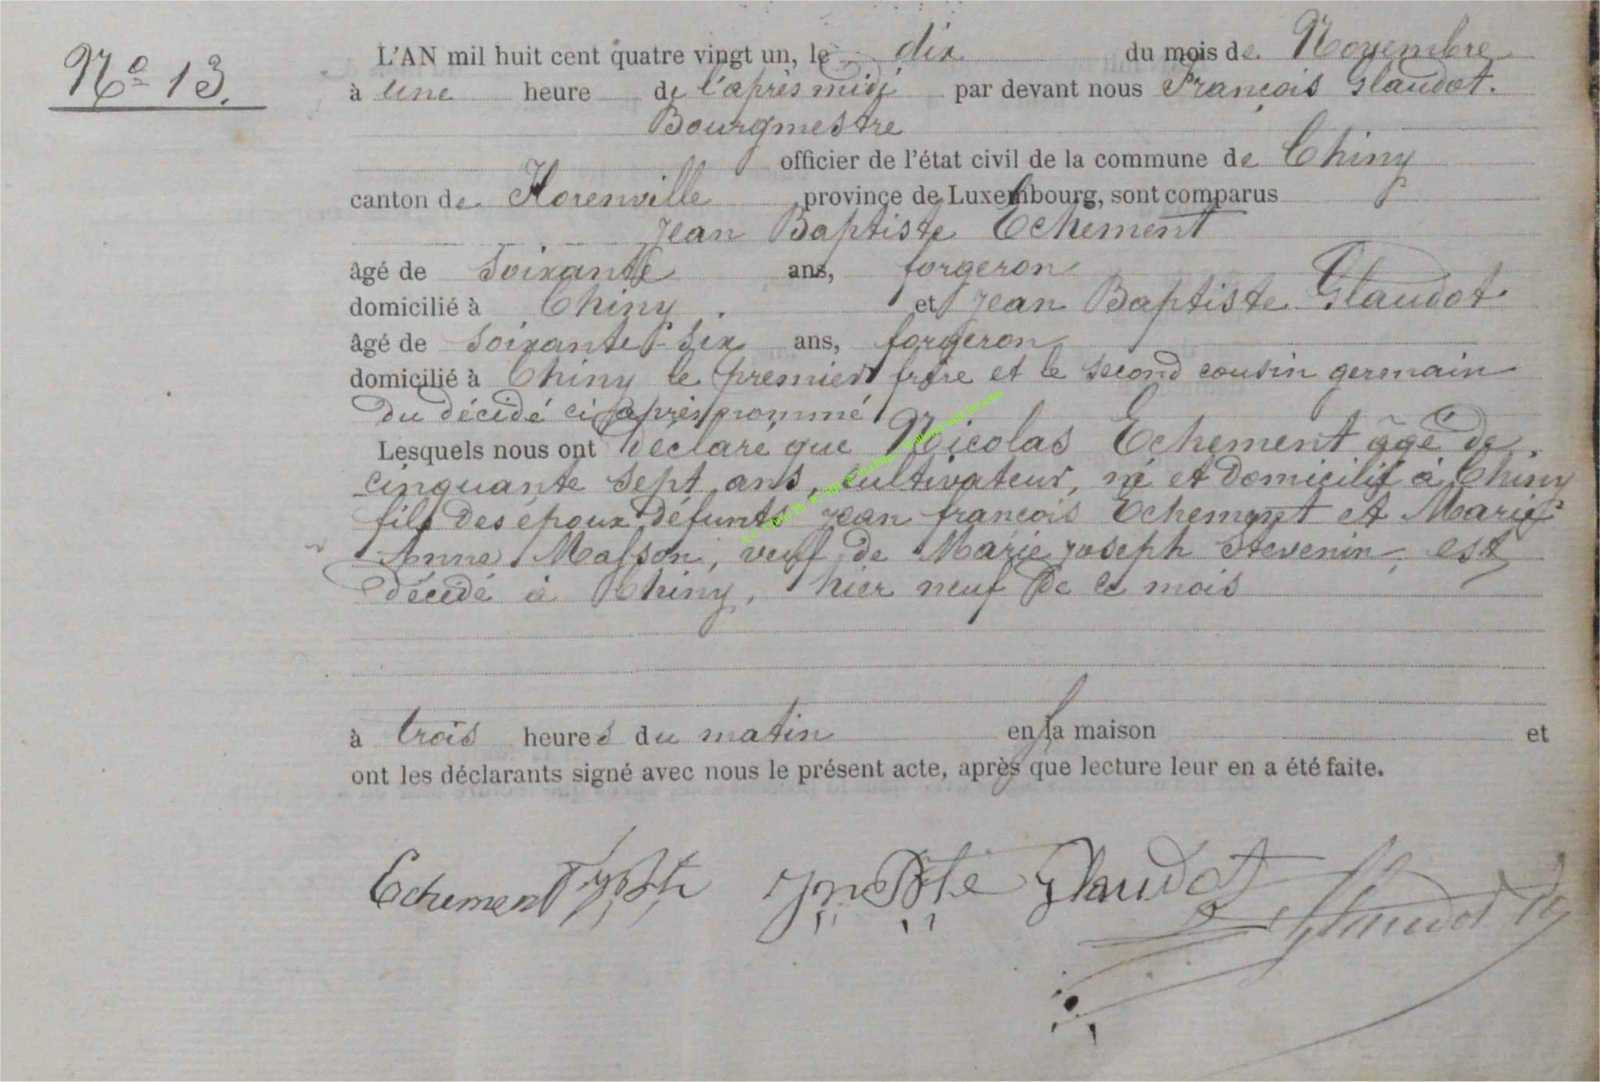 Nº 13.
L'AN mil huit cent quatre vingt un, le dix du mois de Novembre
à une heure de l'après midi par devant nous François Glaudot.
Bourgmestre
officier de l'état civil de la commune de Chiny
canton de Florenville province de Luxembourg, sont comparus
Jean Baptiste Echement
âgé de soixante ans, forgeron
domicilié à Chiny. et Jean Baptiste Glaudot
âgé de soixante-six ans, forgeron
domicilié à Chiny le premier frère et le second cousin germain
du décédé ci après nommé
Lesquels nous ont déclaré que Nicolas Echement âgé de
cinquante sept ans, cultivateur, né et domicilié à Chiny
fils des époux défunts Jean françois Echement et Marie
Anne Masson, veuf de Marie joseph Stevenin, est
décédé à Chiny, hier neuf de ce mois
à trois heures du matin en la maison et
ont les déclarants signé avec nous le présent acte, après que lecture leur en a été faite.
Echement Jn Bte Glaudot Glaudot